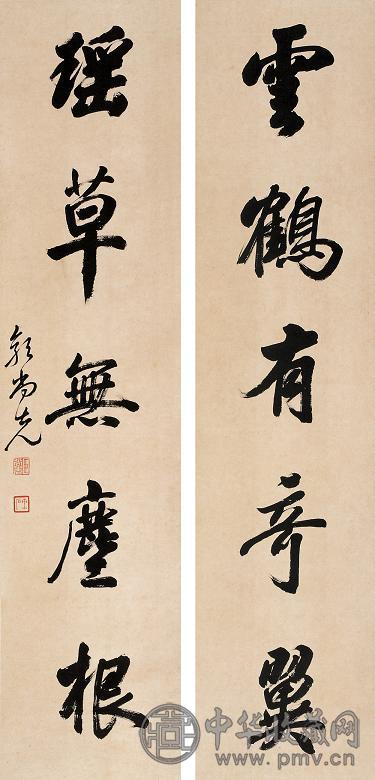 雲鶴有奇翼
瑤草無塵根
郭尚先
中华收藏网
www.pmv.cn